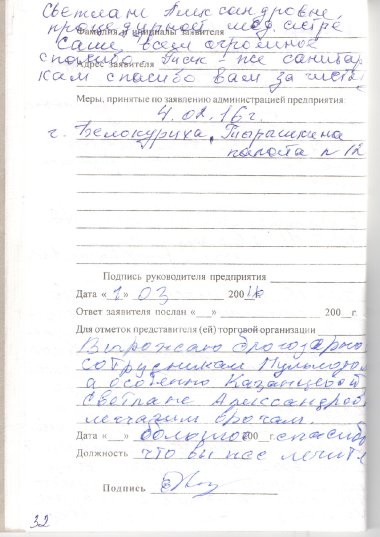 Светлане Александровне,
процедурной мед. сестре
Фамилия и инициалы заявителя
Саше, всем огромное
спасибо
Адрес заявителя
все санитар
кам спасибо вам за
Меры, принятые по заявлению администрацией предприятия:
4.02.16г.
г. Белокуриха, Тырашкина
палата n 12
Подпись руководителя предприятия
Дата «1» 03 2001
Ответ заявителя послан «__» 200__г.
Для отметок представителя (ей) торговой организации
Выражаю
сотрудникам
а особенно Казанцевой
Светлане Александров
лечащим врачам.
Дата «__» большое 200 г. спасибо
Должность что вы нас лечите
Подпись
32